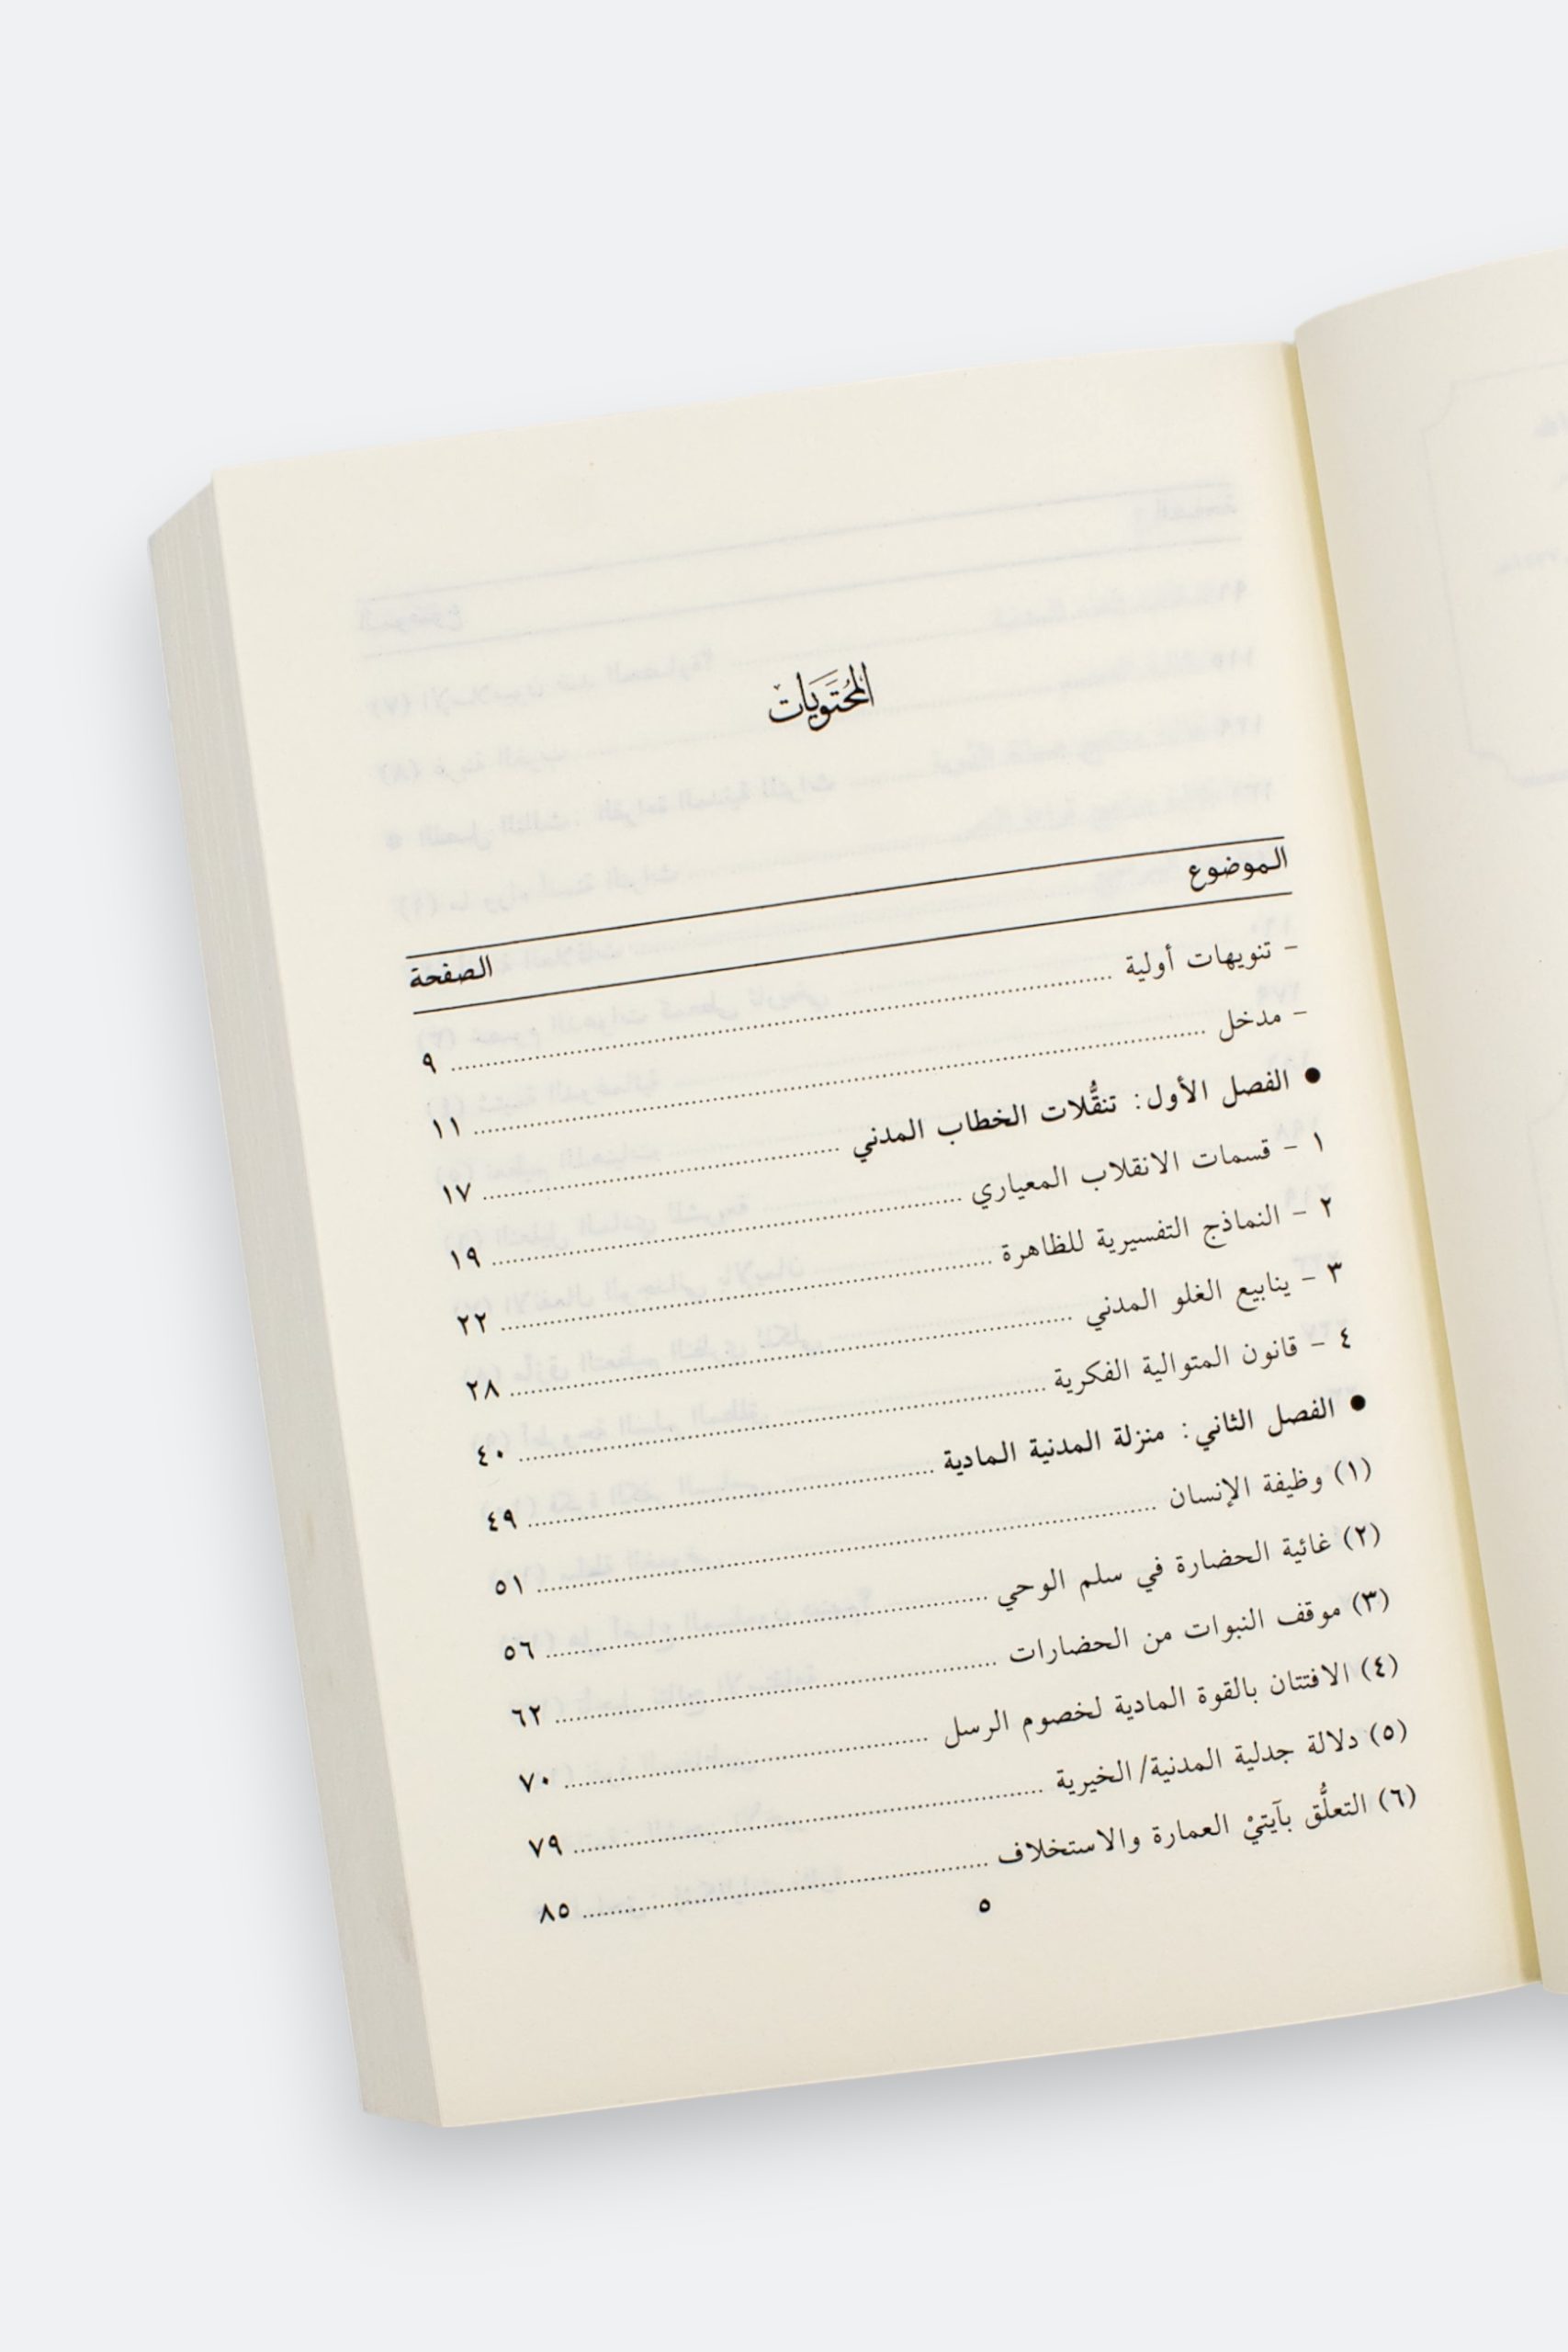 المُحتَوَيَات
الموضوع الصفحة
- تنويهات أولية ........ ٩
- مدخل ........ ١١
● الفصل الأول: تنقُّلات الخطاب المدني ........ ١٧
١ - قسمات الانقلاب المعياري ........ ١٩
٢ - النماذج التفسيرية للظاهرة ........ ٢٢
٣ - ينابيع الغلو المدني ........ ٢٨
٤ - قانون المتوالية الفكرية ........ ٤٠
● الفصل الثاني: منزلة المدنية المادية ........ ٤٩
(١) وظيفة الإنسان ........ ٥١
(٢) غائية الحضارة في سلم الوحي ........ ٥٦
(٣) موقف النبوات من الحضارات ........ ٦٢
(٤) الافتتان بالقوة المادية لخصوم الرسل ........ ٧٠
(٥) دلالة جدلية المدنية/الخيرية ........ ٧٩
(٦) التعلُّق بآيتيْ العمارة والاستخلاف ........ ٨٥
٥